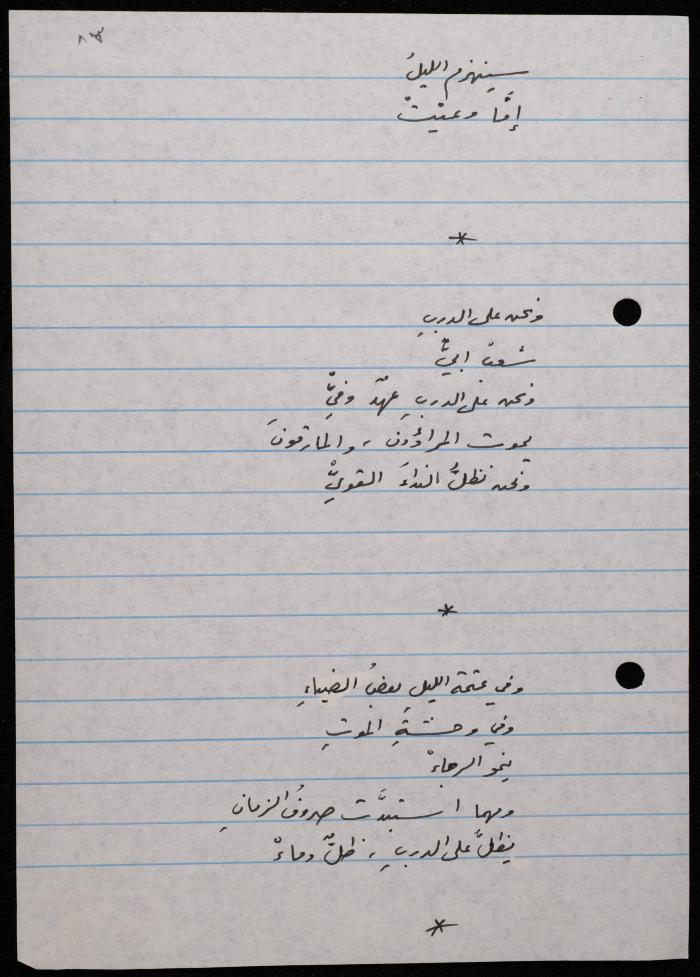 سينهزم الليلُ
إمَّا وعيْتْ
*
ونحن على الدربِ
شعبٌ ابيٌّ
ونحن على الدربِ عهدٌ وفيٌّ
يموت المراؤون، والمارقونَ
ونحن نظلُّ النداءَ القويّْ
*
وفي عتمة الليلِ بعضُ الضياءِ
وفي وحشةِ الموتِ
ينمو الرجاءْ
ومهما استبدَّت صروفُ الزمانِ
يظلُّ على الدربِ، ظلٌّ وماءْ
*